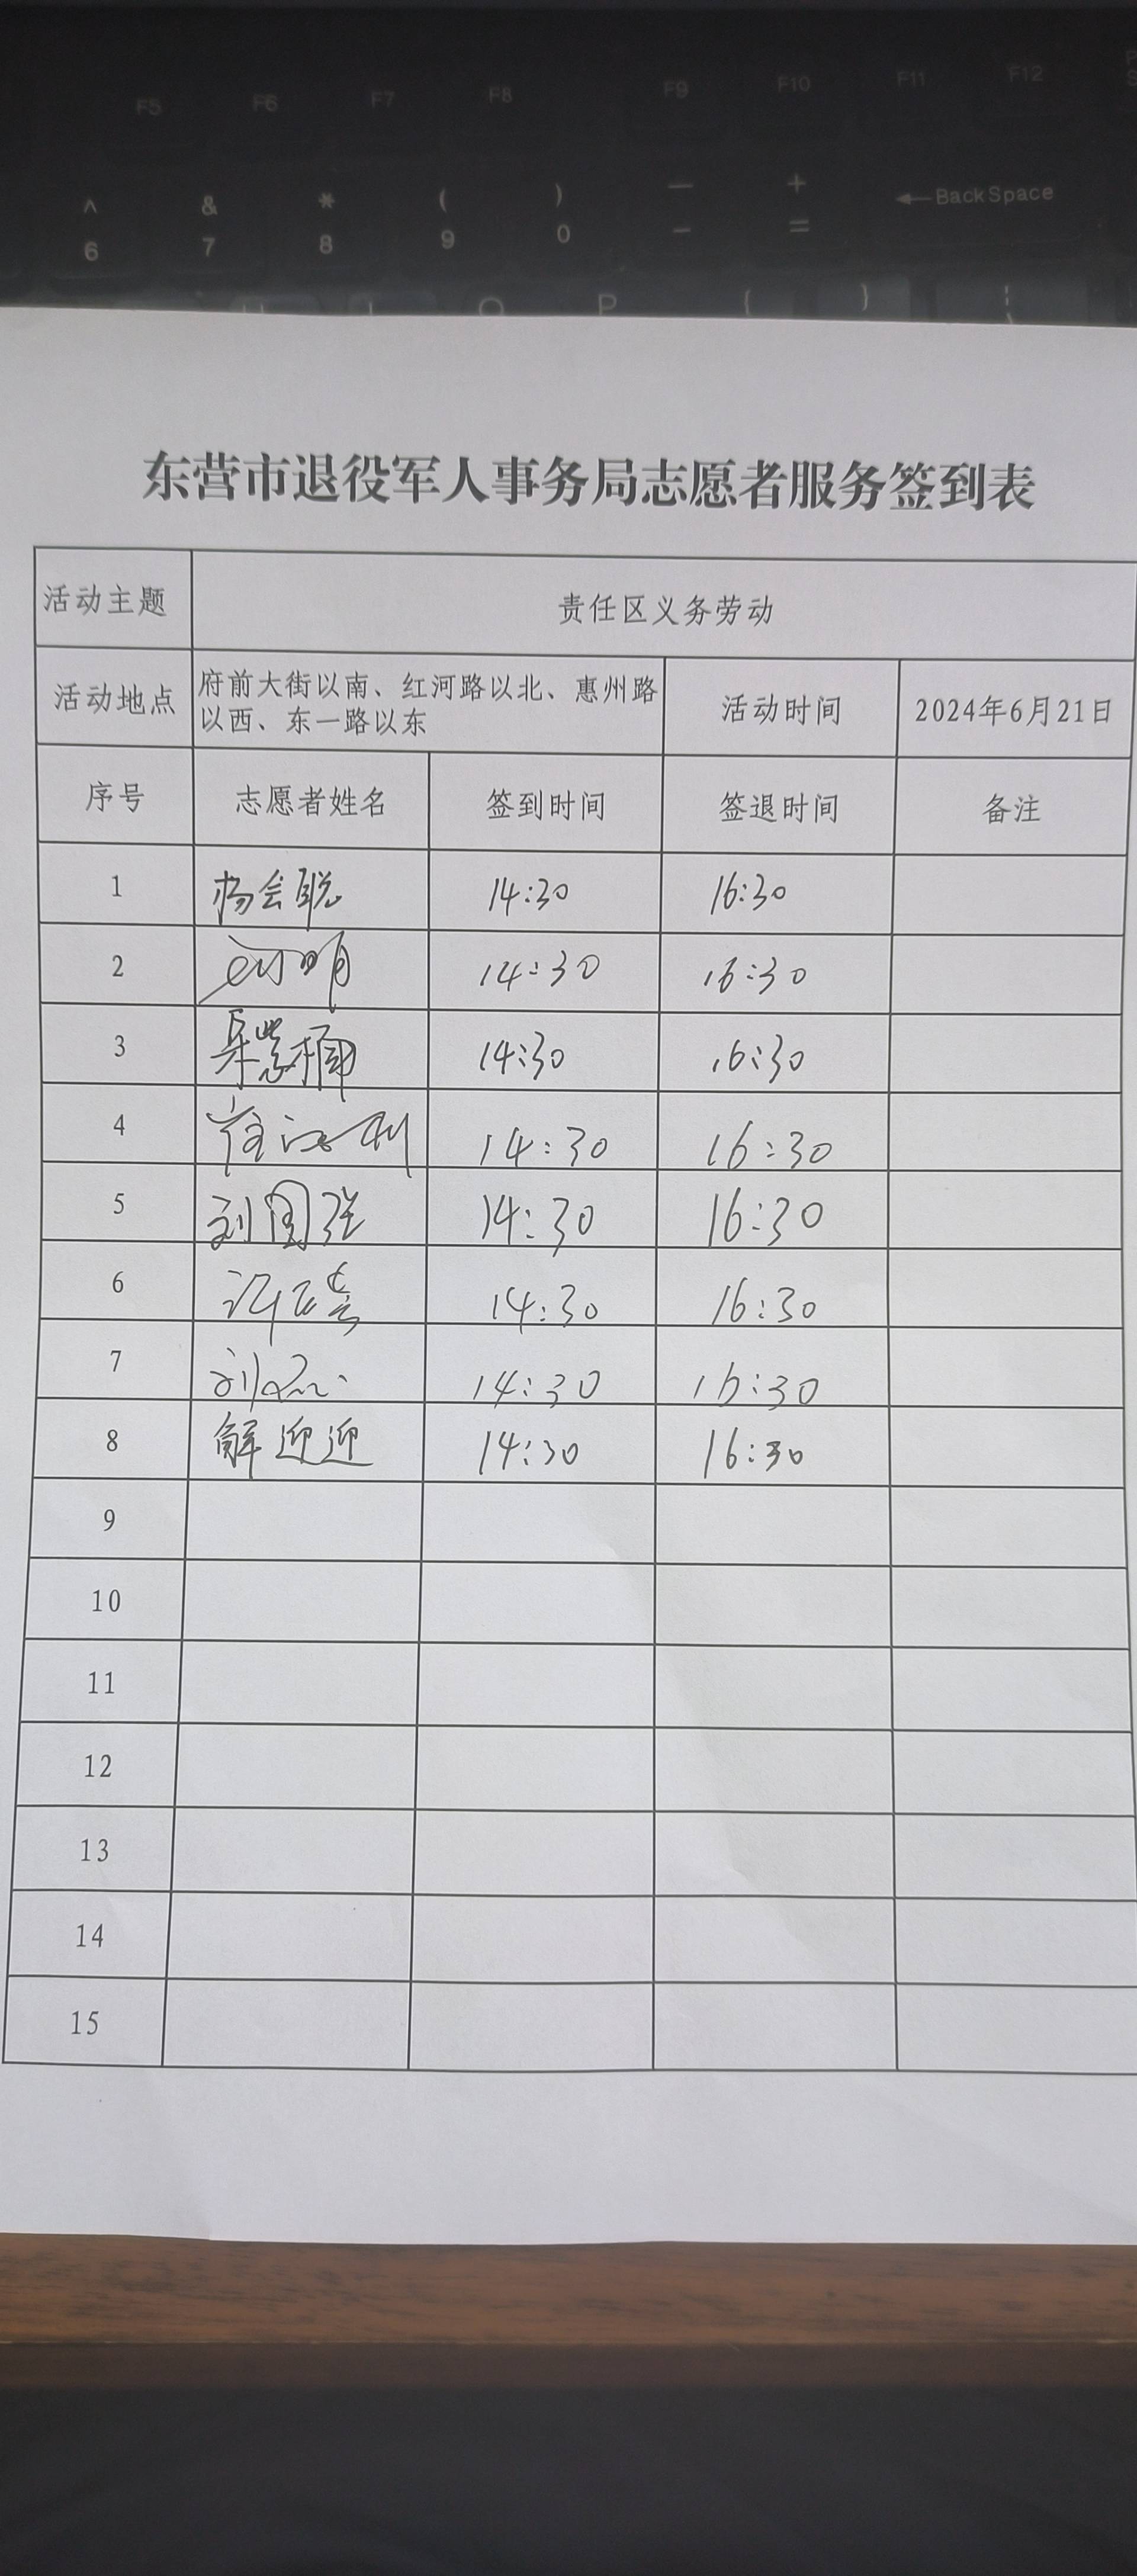 F5 F6 F7 F8 F9 F10 F11 F12
^ & * ( ) — + ←BackSpace
6 7 8 9 0 - =
O P { }
东营市退役军人事务局志愿者服务签到表
活动主题 责任区义务劳动
活动地点 府前大街以南、红河路以北、惠州路以西、东一路以东 活动时间 2024年6月21日
序号 志愿者姓名 签到时间 签退时间 备注
1 杨会聪 14:30 16:30
2 14:30 16:30
3 14:30 16:30
4 14:30 16:30
5 刘国强 14:30 16:30
6 14:30 16:30
7 14:30 16:30
8 解迎迎 14:30 16:30
9
10
11
12
13
14
15